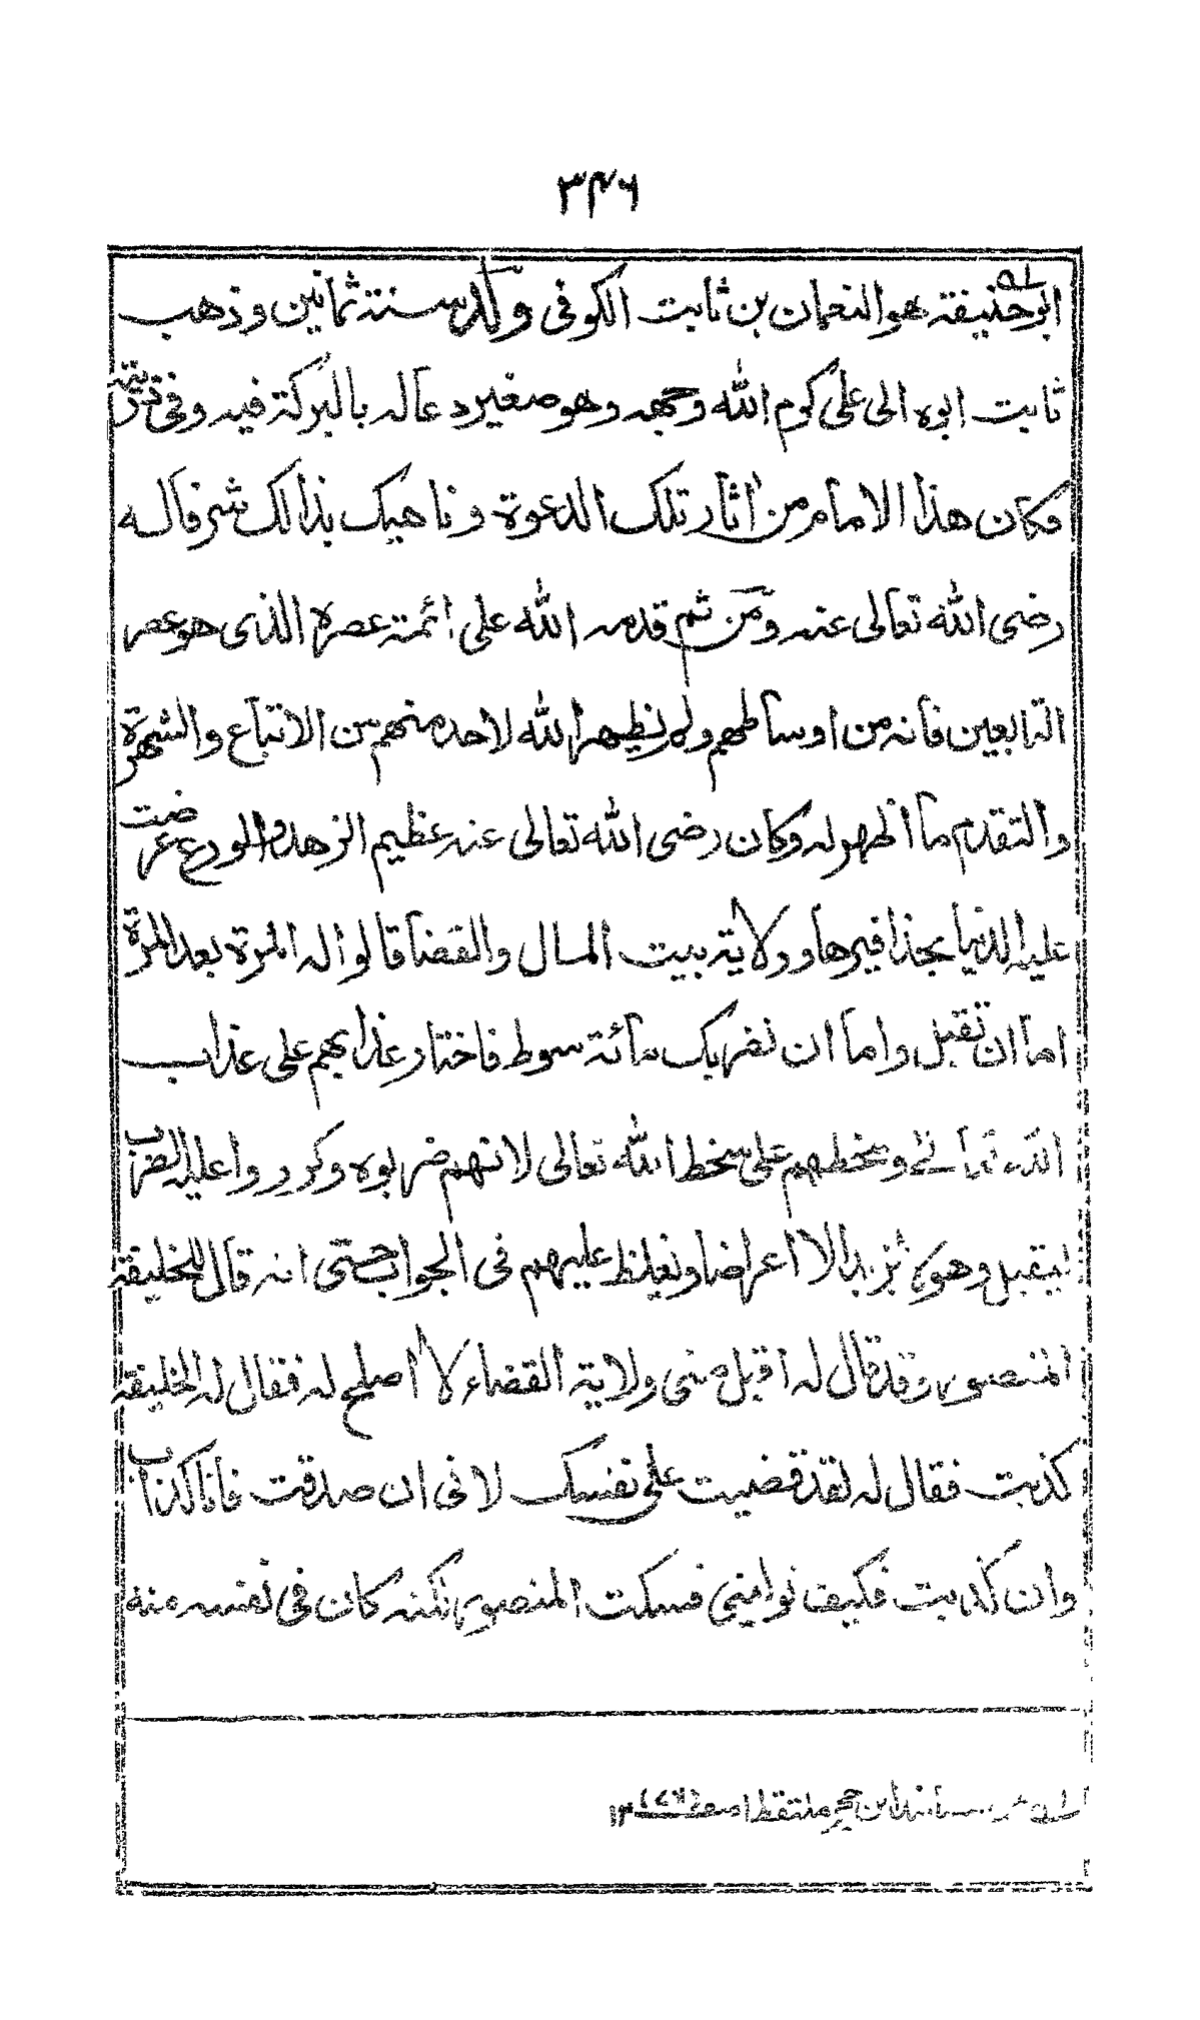 ۳۴۶
ابوحنيفة هو النعمان بن ثابت الكوفى ولد سنة ثمانين وذهب
ثابت ابوه الى على كرم الله وجهه وهو صغير دعا له بالبركة فيه وفى ذريته
فكان هذا الامام من اٰثار تلك الدعوة وناهيك بذالك شرفا له
رضى الله تعالى عنه ومن ثم قدمه الله على ائمة عصره الذى هو عصر
التابعين فانه من اوساطهم ولم يظهر الله لاحد منهم من الاتباع والشهرة
والتقدم ما اظهر له وكان رضى الله تعالى عنه عظيم الزهد والورع عرضت
عليه الدنيا بحذافيرها وولاية بيت المال والقضا قالوا له المرة بعد المرة
اما ان تقبل واما ان نضربك مائة سوط فاختار عذابهم على عذاب
الله تعالے وسخطهم على سخط الله تعالى لانهم ضربوه وكرروا عليه الضراب
ليقبل وهو لا يزيد الا اعراضا ويغلظ عليهم فى الجواب حتى انه قال للخليفة
المنصور وقد قال له اقبل منى ولاية القضاء لا اصلح له فقال له الخليفة
كذبت فقال له لقد قضيت على نفسك لانى ان صدقت فانا كذاب
وان كذبت فكيف توامنى فسكت المنصور لكنه كان فى نفسه منه
ابن حجر ملتقطا ۱۲